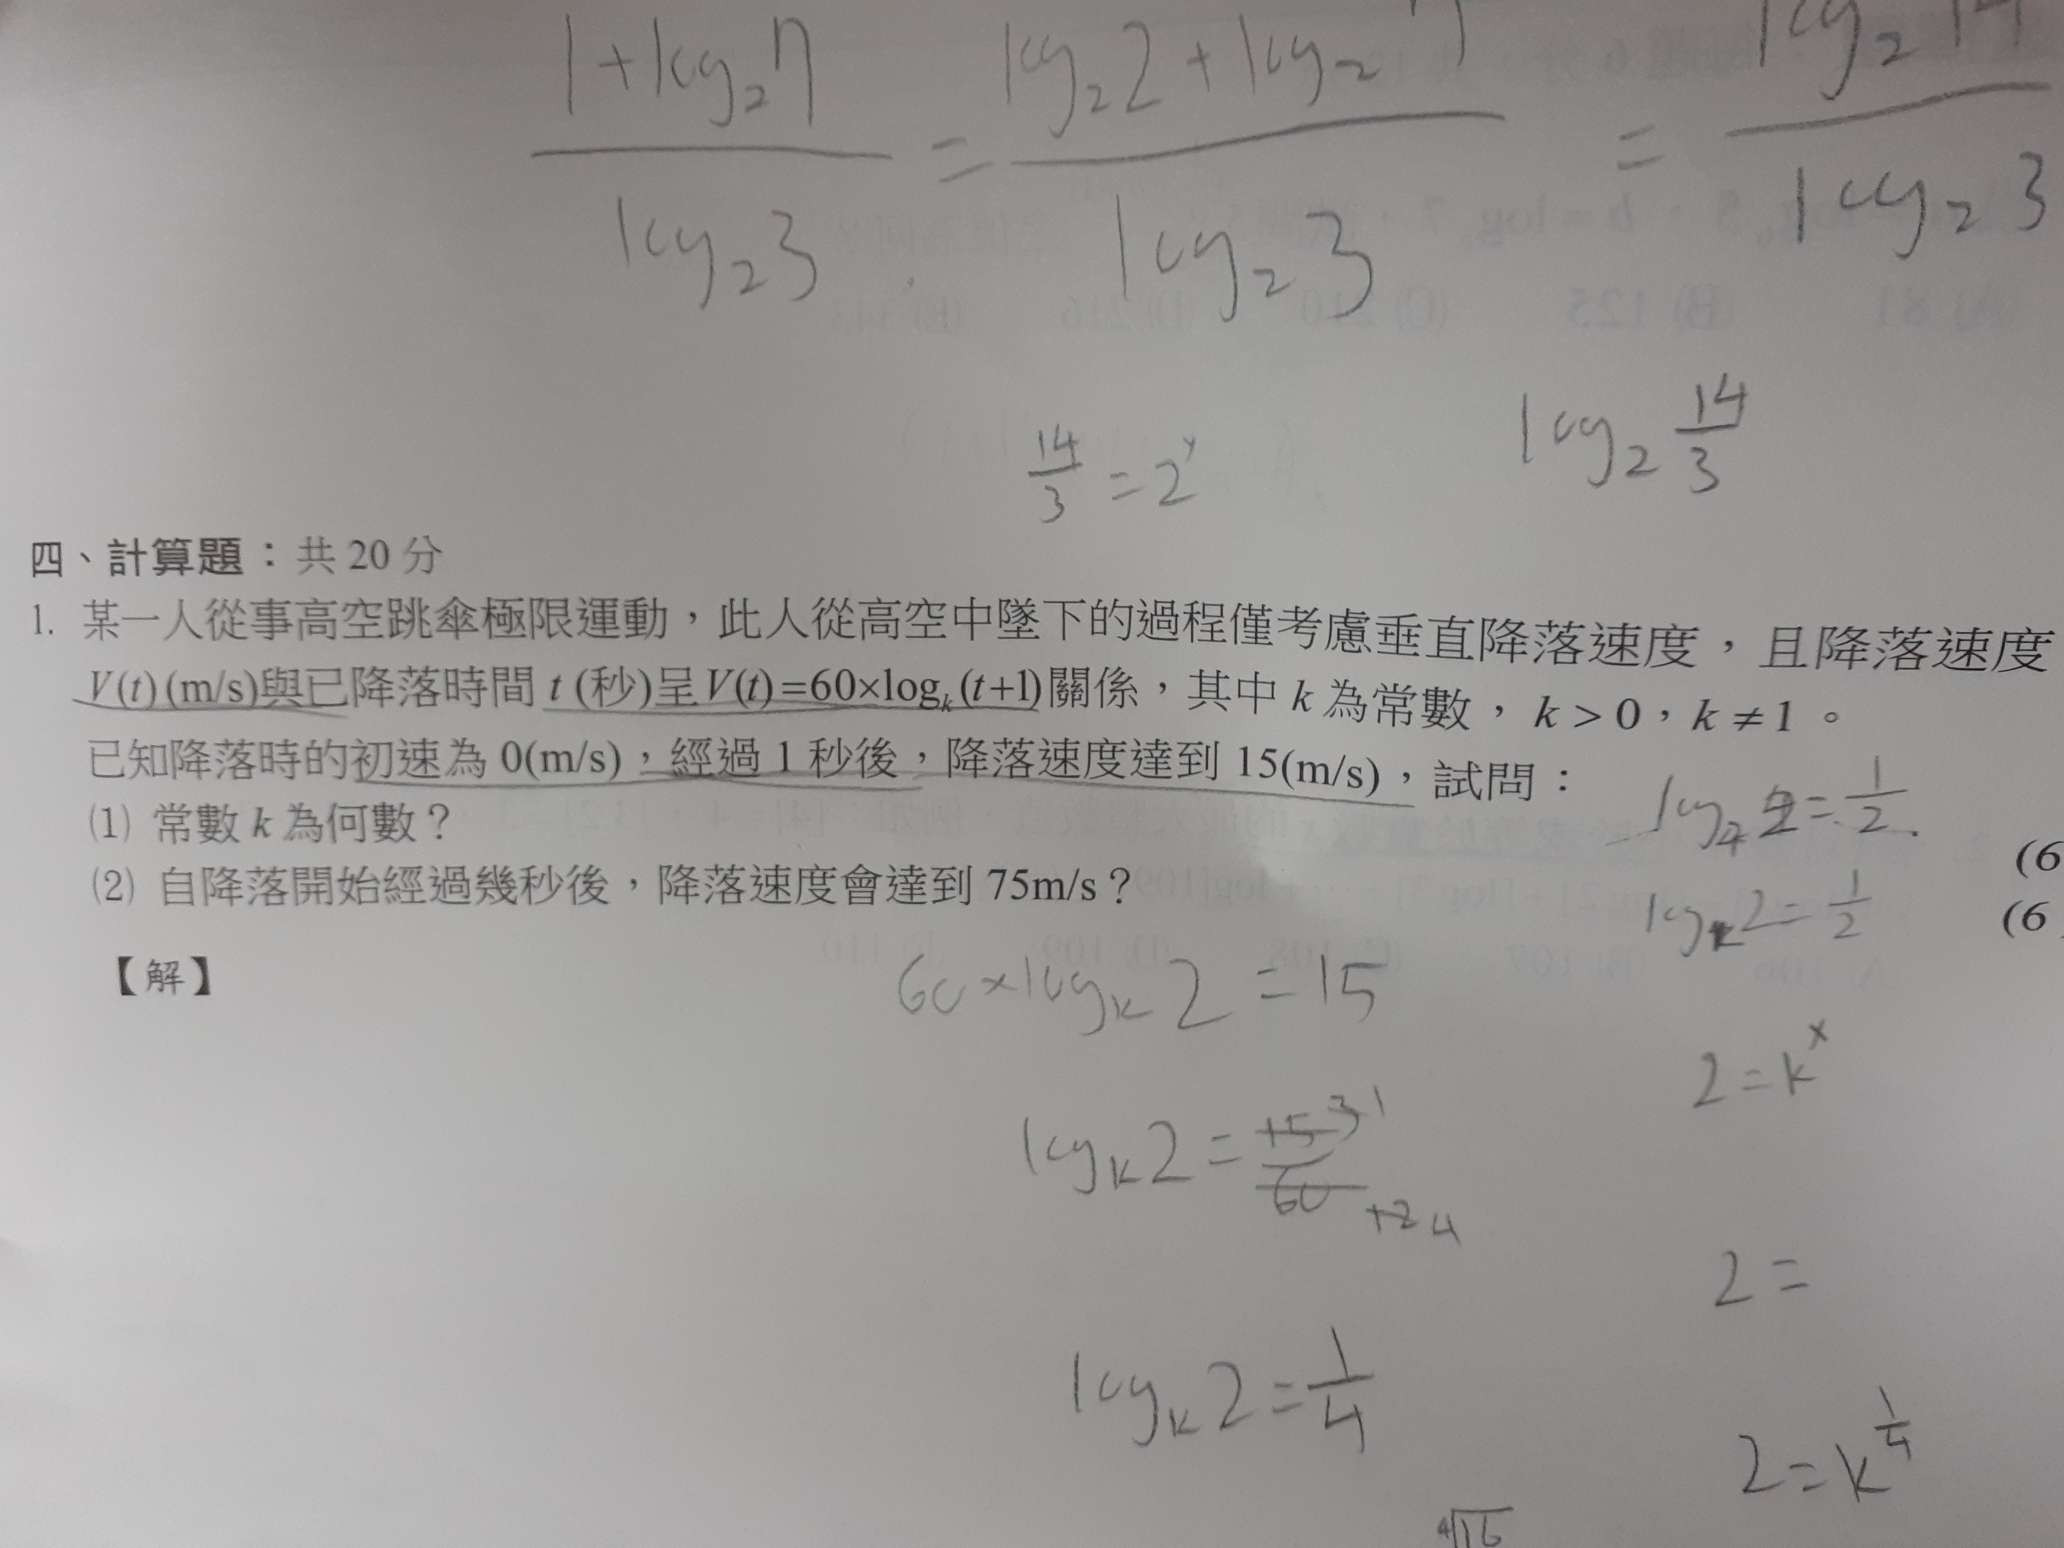 1+log₂7 / log₂3 = log₂2+log₂7 / log₂3 = log₂14 / log₂3
14/3 = 2^y
log₂ 14/3
四、計算題：共 20 分
1. 某一人從事高空跳傘極限運動，此人從高空中墜下的過程僅考慮垂直降落速度，且降落速度
V(t)(m/s)與已降落時間 t (秒)呈 V(t)=60×logₖ(t+1)關係，其中 k 為常數，k > 0，k ≠ 1 。
已知降落時的初速為 0(m/s)，經過 1 秒後，降落速度達到 15(m/s)，試問：
(1) 常數 k 為何數？
(6
(2) 自降落開始經過幾秒後，降落速度會達到 75m/s？
(6
log₄2=1/2
logₖ2=1/2
【解】
60×logₖ2=15
2=k^x
logₖ2=15/60
2=
logₖ2=1/4
2=k^1/4
⁴√16